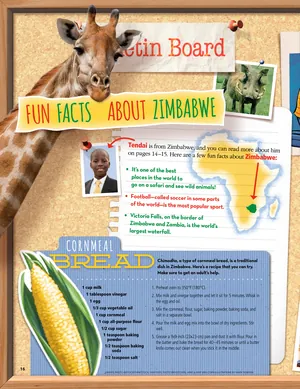 etin Board
FUN FACTS ABOUT ZIMBABWE
Tendai is from Zimbabwe, and you can read more about him
on pages 14–15. Here are a few fun facts about Zimbabwe:
• It's one of the best
places in the world to
go on a safari and see wild animals!
• Football–called soccer in some parts
of the world–is the most popular sport.
• Victoria Falls, on the border of
Zimbabwe and Zambia, is the world's
largest waterfall.
CORNMEAL
BREAD
Chimodho, a type of cornmeal bread, is a traditional
dish in Zimbabwe. Here's a recipe that you can try.
Make sure to get an adult's help.
1 cup milk
1 tablespoon vinegar
1 egg
1/2 cup vegetable oil
1 cup cornmeal
1 cup all-purpose flour
1/2 cup sugar
1 teaspoon baking
powder
1/2 teaspoon baking
soda
1/2 teaspoon salt
1. Preheat oven to 350°F (180°C).
2. Mix milk and vinegar together and let it sit for 5 minutes. Whisk in
the egg and oil.
3. Mix the cornmeal, flour, sugar, baking powder, baking soda, and
salt in a separate bowl.
4. Pour the milk and egg mix into the bowl of dry ingredients. Stir
well.
16